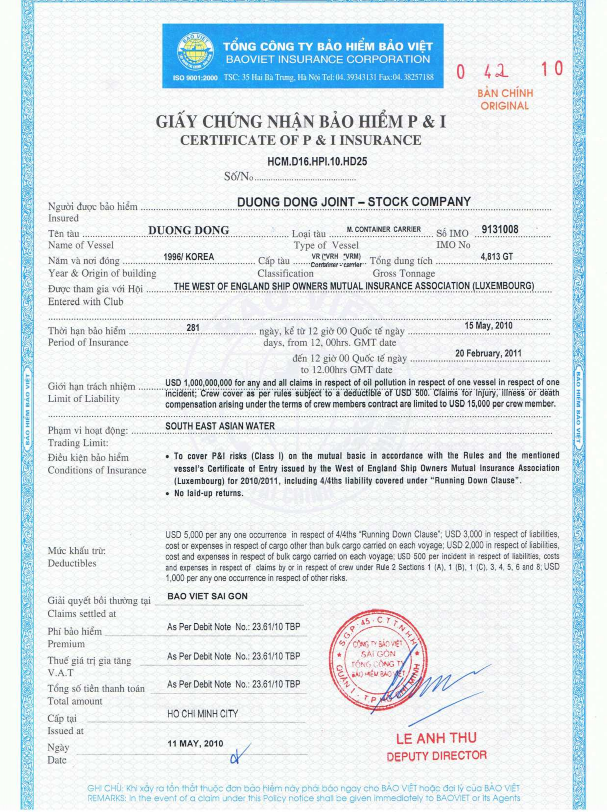 BAO VIET
TỔNG CÔNG TY BẢO HIỂM BẢO VIỆT
BAOVIET INSURANCE CORPORATION
ISO 9001:2000 TSC: 35 Hai Bà Trưng, Hà Nội Tel: 04. 39343131 Fax:04. 38257188
0 42 10
BẢN CHÍNH
ORIGINAL
GIẤY CHỨNG NHẬN BẢO HIỂM P & I
CERTIFICATE OF P & I INSURANCE
HCM.D16.HPI.10.HD25
Số/No
Người được bảo hiểm DUONG DONG JOINT – STOCK COMPANY
Insured
Tên tàu DUONG DONG Loại tàu M. CONTAINER CARRIER Số IMO 9131008
Name of Vessel Type of Vessel IMO No
Năm và nơi đóng 1996/ KOREA Cấp tàu VR (*VRH *VRM) Container – carrier Tổng dung tích 4,813 GT
Year & Origin of building Classification Gross Tonnage
Được tham gia với Hội THE WEST OF ENGLAND SHIP OWNERS MUTUAL INSURANCE ASSOCIATION (LUXEMBOURG)
Entered with Club
Thời hạn bảo hiểm 281 ngày, kể từ 12 giờ 00 Quốc tế ngày 15 May, 2010
Period of Insurance days, from 12, 00hrs. GMT date
đến 12 giờ 00 Quốc tế ngày 20 February, 2011
to 12.00hrs GMT date
Giới hạn trách nhiệm USD 1,000,000,000 for any and all claims in respect of oil pollution in respect of one vessel in respect of one
Limit of Liability incident; Crew cover as per rules subject to a deductible of USD 500. Claims for injury, illness or death
compensation arising under the terms of crew members contract are limited to USD 15,000 per crew member.
Phạm vi hoạt động: SOUTH EAST ASIAN WATER
Trading Limit:
Điều kiện bảo hiểm • To cover P&I risks (Class I) on the mutual basic in accordance with the Rules and the mentioned
Conditions of Insurance vessel's Certificate of Entry issued by the West of England Ship Owners Mutual Insurance Association
(Luxembourg) for 2010/2011, including 4/4ths liability covered under "Running Down Clause".
• No laid-up returns.
USD 5,000 per any one occurrence in respect of 4/4ths "Running Down Clause"; USD 3,000 in respect of liabilities,
cost or expenses in respect of cargo other than bulk cargo carried on each voyage; USD 2,000 in respect of liabilities,
Mức khấu trừ: cost and expenses in respect of bulk cargo carried on each voyage; USD 500 per incident in respect of liabilities, costs
Deductibles and expenses in respect of claims by or in respect of crew under Rule 2 Sections 1 (A), 1 (B), 1 (C). 3, 4, 5, 6 and 8; USD
1,000 per any one occurrence in respect of other risks.
Giải quyết bồi thường tại BAO VIET SAI GON
Claims settled at
Phí bảo hiểm As Per Debit Note No.: 23.61/10 TBP
Premium
Thuế giá trị gia tăng As Per Debit Note No.: 23.61/10 TBP
V.A.T
Tổng số tiền thanh toán As Per Debit Note No.: 23.61/10 TBP
Total amount
Cấp tại HO CHI MINH CITY
Issued at
Ngày 11 MAY, 2010
Date
SGP:45-CTTNHH
CÔNG TY BẢO VIỆT
SAI GON
TỔNG CÔNG TY
BẢO HIỂM BẢO VIỆT
QUẬN 1 - TP HỒ CHÍ MINH
LE ANH THU
DEPUTY DIRECTOR
GHI CHÚ: Khi xảy ra tổn thất thuộc đơn bảo hiểm này phải báo ngay cho BẢO VIỆT hoặc đại lý của BẢO VIỆT
REMARKS: In the event of a claim under this Policy notice shall be given immediately to BAOVIET or its Agents
BẢO HIỂM BẢO VIỆT
BẢO HIỂM BẢO VIỆT